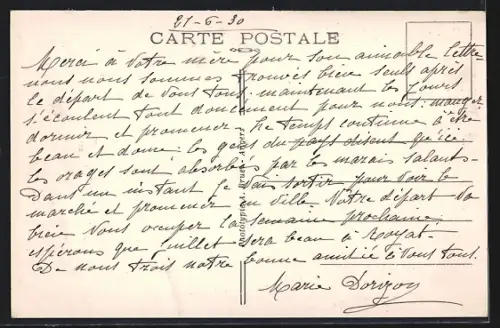 21-6-30
CARTE POSTALE
Merci à votre mère pour son aimable lettre-
nous nous sommes trouvés bien seuls après
le départ de vous tous. maintenant les jours
s'écoulent tout doucement pour nous: manger
dormir et promener - he temps continue à être
beau et doux: les gens du pays disent qu'ici
les orages sont absorbés par les marais salants-
Dans un instant je vais sortir pour voir le
marché et promener en ville Votre départ va
bien vous occuper la semaine prochaine
espérons que juillet sera beau à Royat-
De nous trois notre bonne amitié à vous tous.
Marie
Phototypie